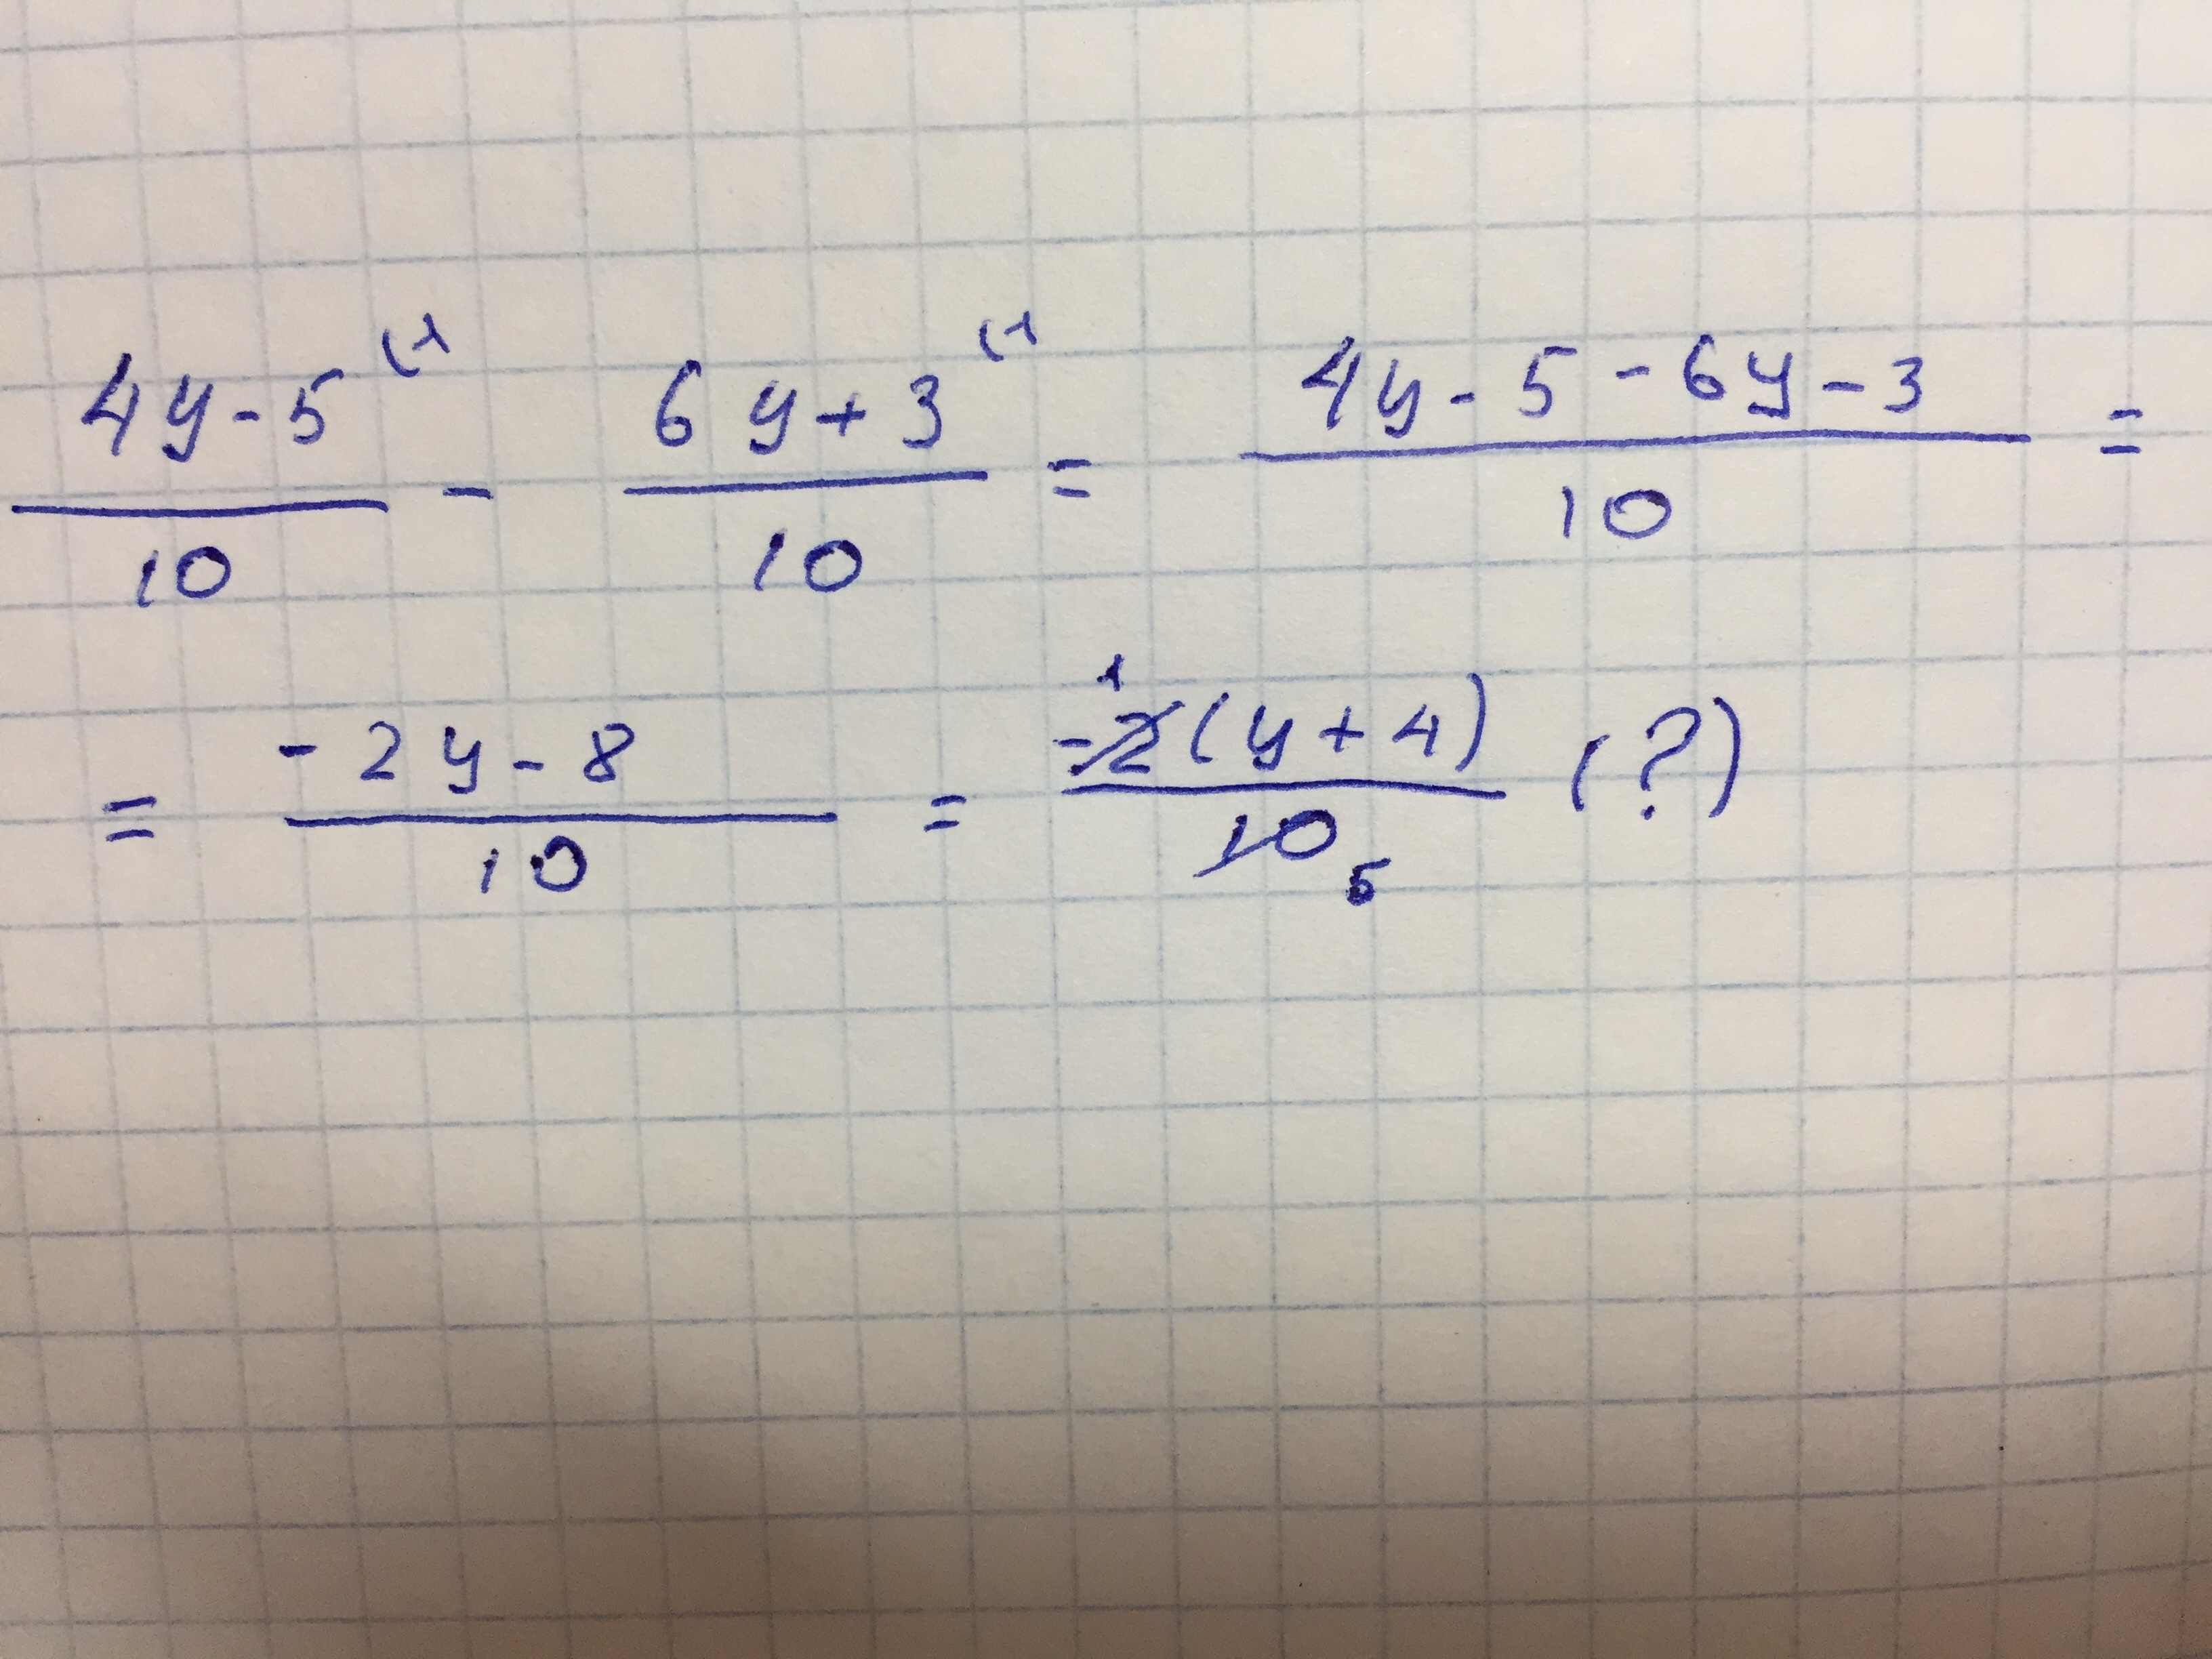 (4y-5)/10 - (6y+3)/10 = (4y-5-6y-3)/10 =
= (-2y-8)/10 = -2(y+4)/10 (?)
1
5